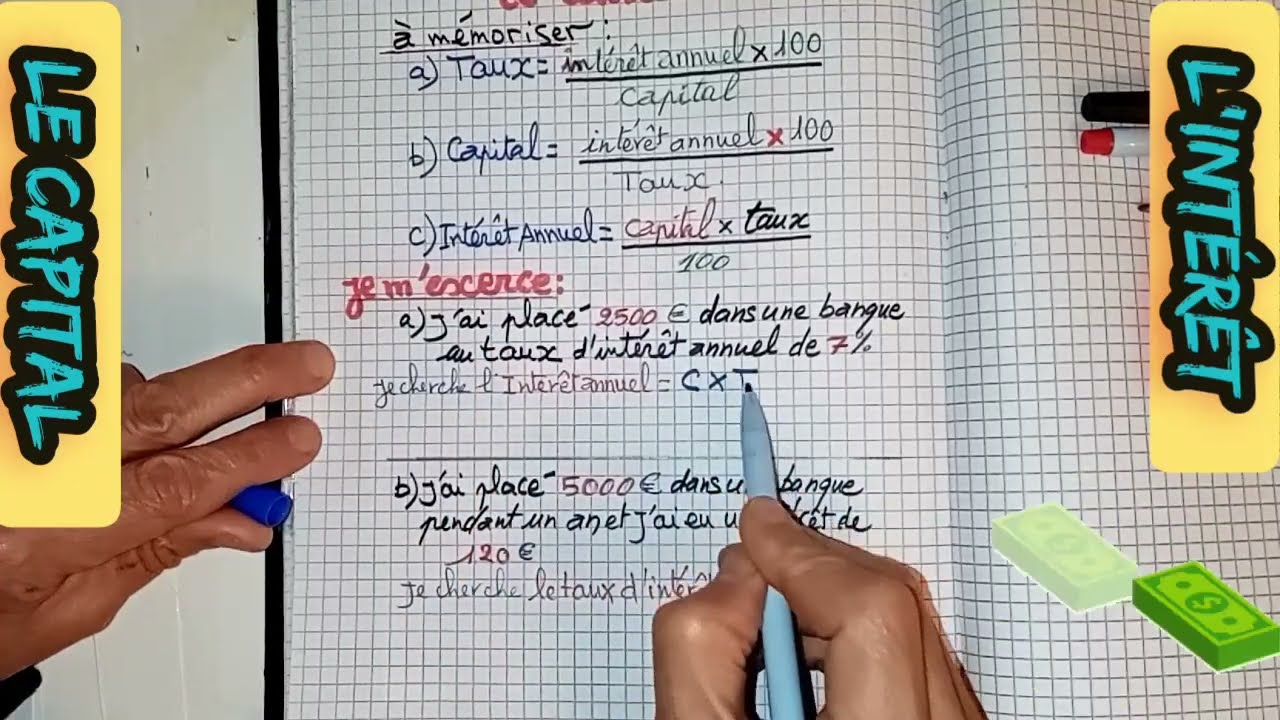 LE CAPITAL
L'INTÉRÊT
à mémoriser :
a) Taux = intérêt annuel x 100
Capital
b) Capital = intérêt annuel x 100
Taux.
c) Intérêt Annuel = capital x taux
100
je m'excerce :
a) j'ai placé 2500 € dans une banque
au taux d'intérêt annuel de 7%
je cherche l'Intérêt annuel = C x T
b) j'ai placé 5000 € dans banque
pendant un an et j'ai eu de
120 €
je cherche le taux